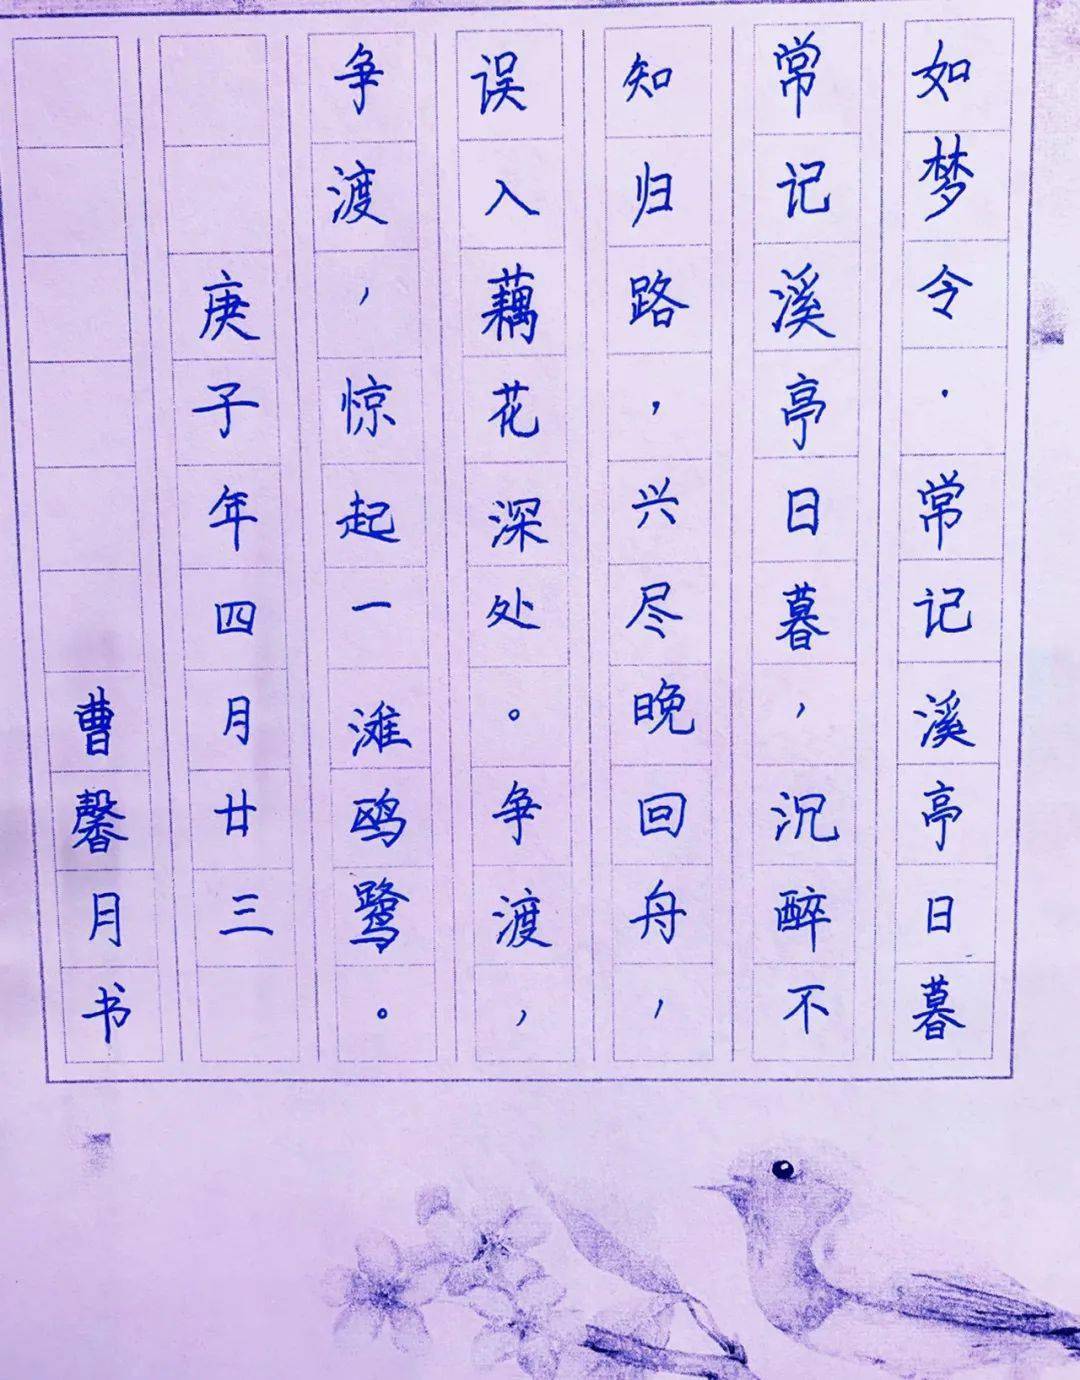 如梦令·常记溪亭日暮
常记溪亭日暮，沉醉不
知归路，兴尽晚回舟，
误入藕花深处。争渡，
争渡，惊起一滩鸥鹭。
庚子年四月廿三
曹馨月书